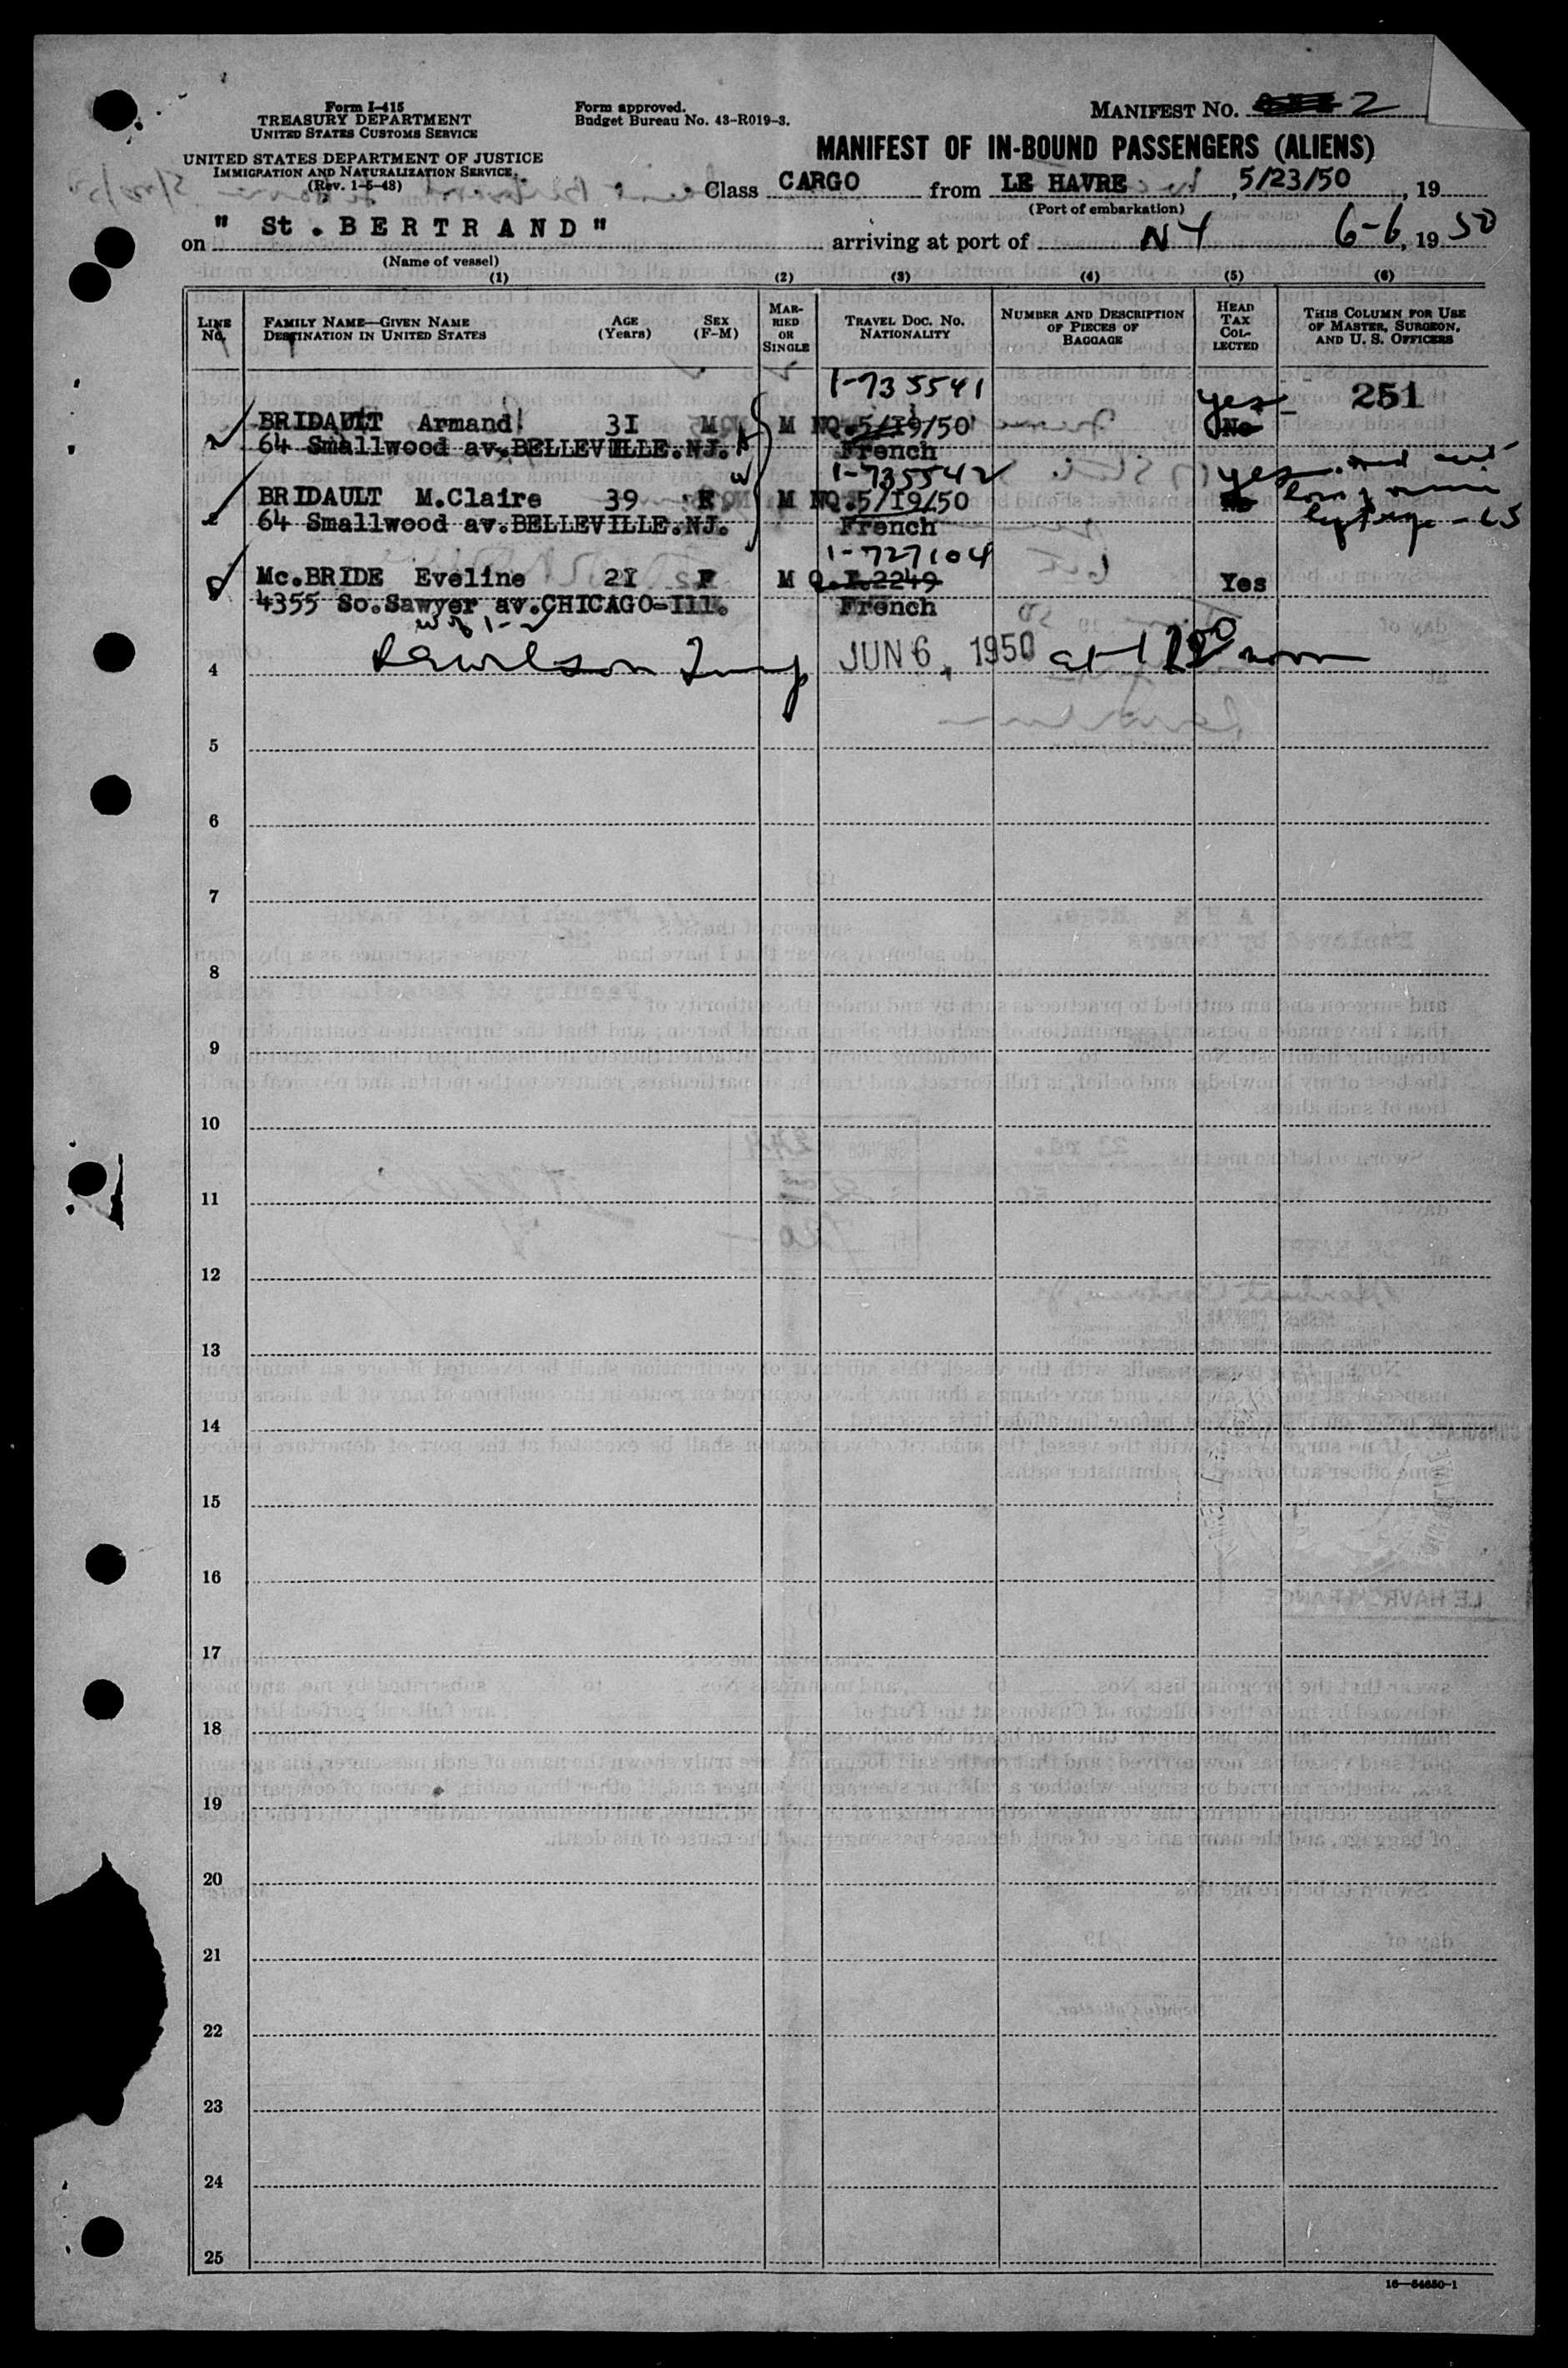 Form I-415
TREASURY DEPARTMENT
UNITED STATES CUSTOMS SERVICE
UNITED STATES DEPARTMENT OF JUSTICE
IMMIGRATION AND NATURALIZATION SERVICE.
(Rev. 1-5-48)
Form approved.
Budget Bureau No. 43-R019-3.
MANIFEST NO. 2
MANIFEST OF IN-BOUND PASSENGERS (ALIENS)
Class CARGO from LE HAVRE, 5/23/50, 19
(Port of embarkation)
on "St.BERTRAND" arriving at port of NY 6-6, 1950
(Name of vessel)
(1) (2) (3) (4) (5) (6)
LINE No. FAMILY NAME—GIVEN NAME DESTINATION IN UNITED STATES AGE (Years) SEX (F-M) MARRIED OR SINGLE TRAVEL DOC. NO. NATIONALITY NUMBER AND DESCRIPTION OF PIECES OF BAGGAGE HEAD TAX COLLECTED THIS COLUMN FOR USE OF MASTER, SURGEON, AND U. S. OFFICERS
1-735541
BRIDAULT Armand 3I M M NQ.5/I9/50 yes No 251
64 Smallwood av.BELLEVILLE.NJ. French
1-735542
BRIDAULT M.Claire 39 F M NQ.5/I9/50 yes No
64 Smallwood av.BELLEVILLE.NJ. French
1-727104
Mc.BRIDE Eveline 2I F M Q.I.2249 Yes
4355 So.Sawyer av.CHICAGO-Ill. French
4 JUN 6, 1950 at noon
5
6
7
8
9
10
11
12
13
14
15
16
17
18
19
20
21
22
23
24
25
16—54650-1